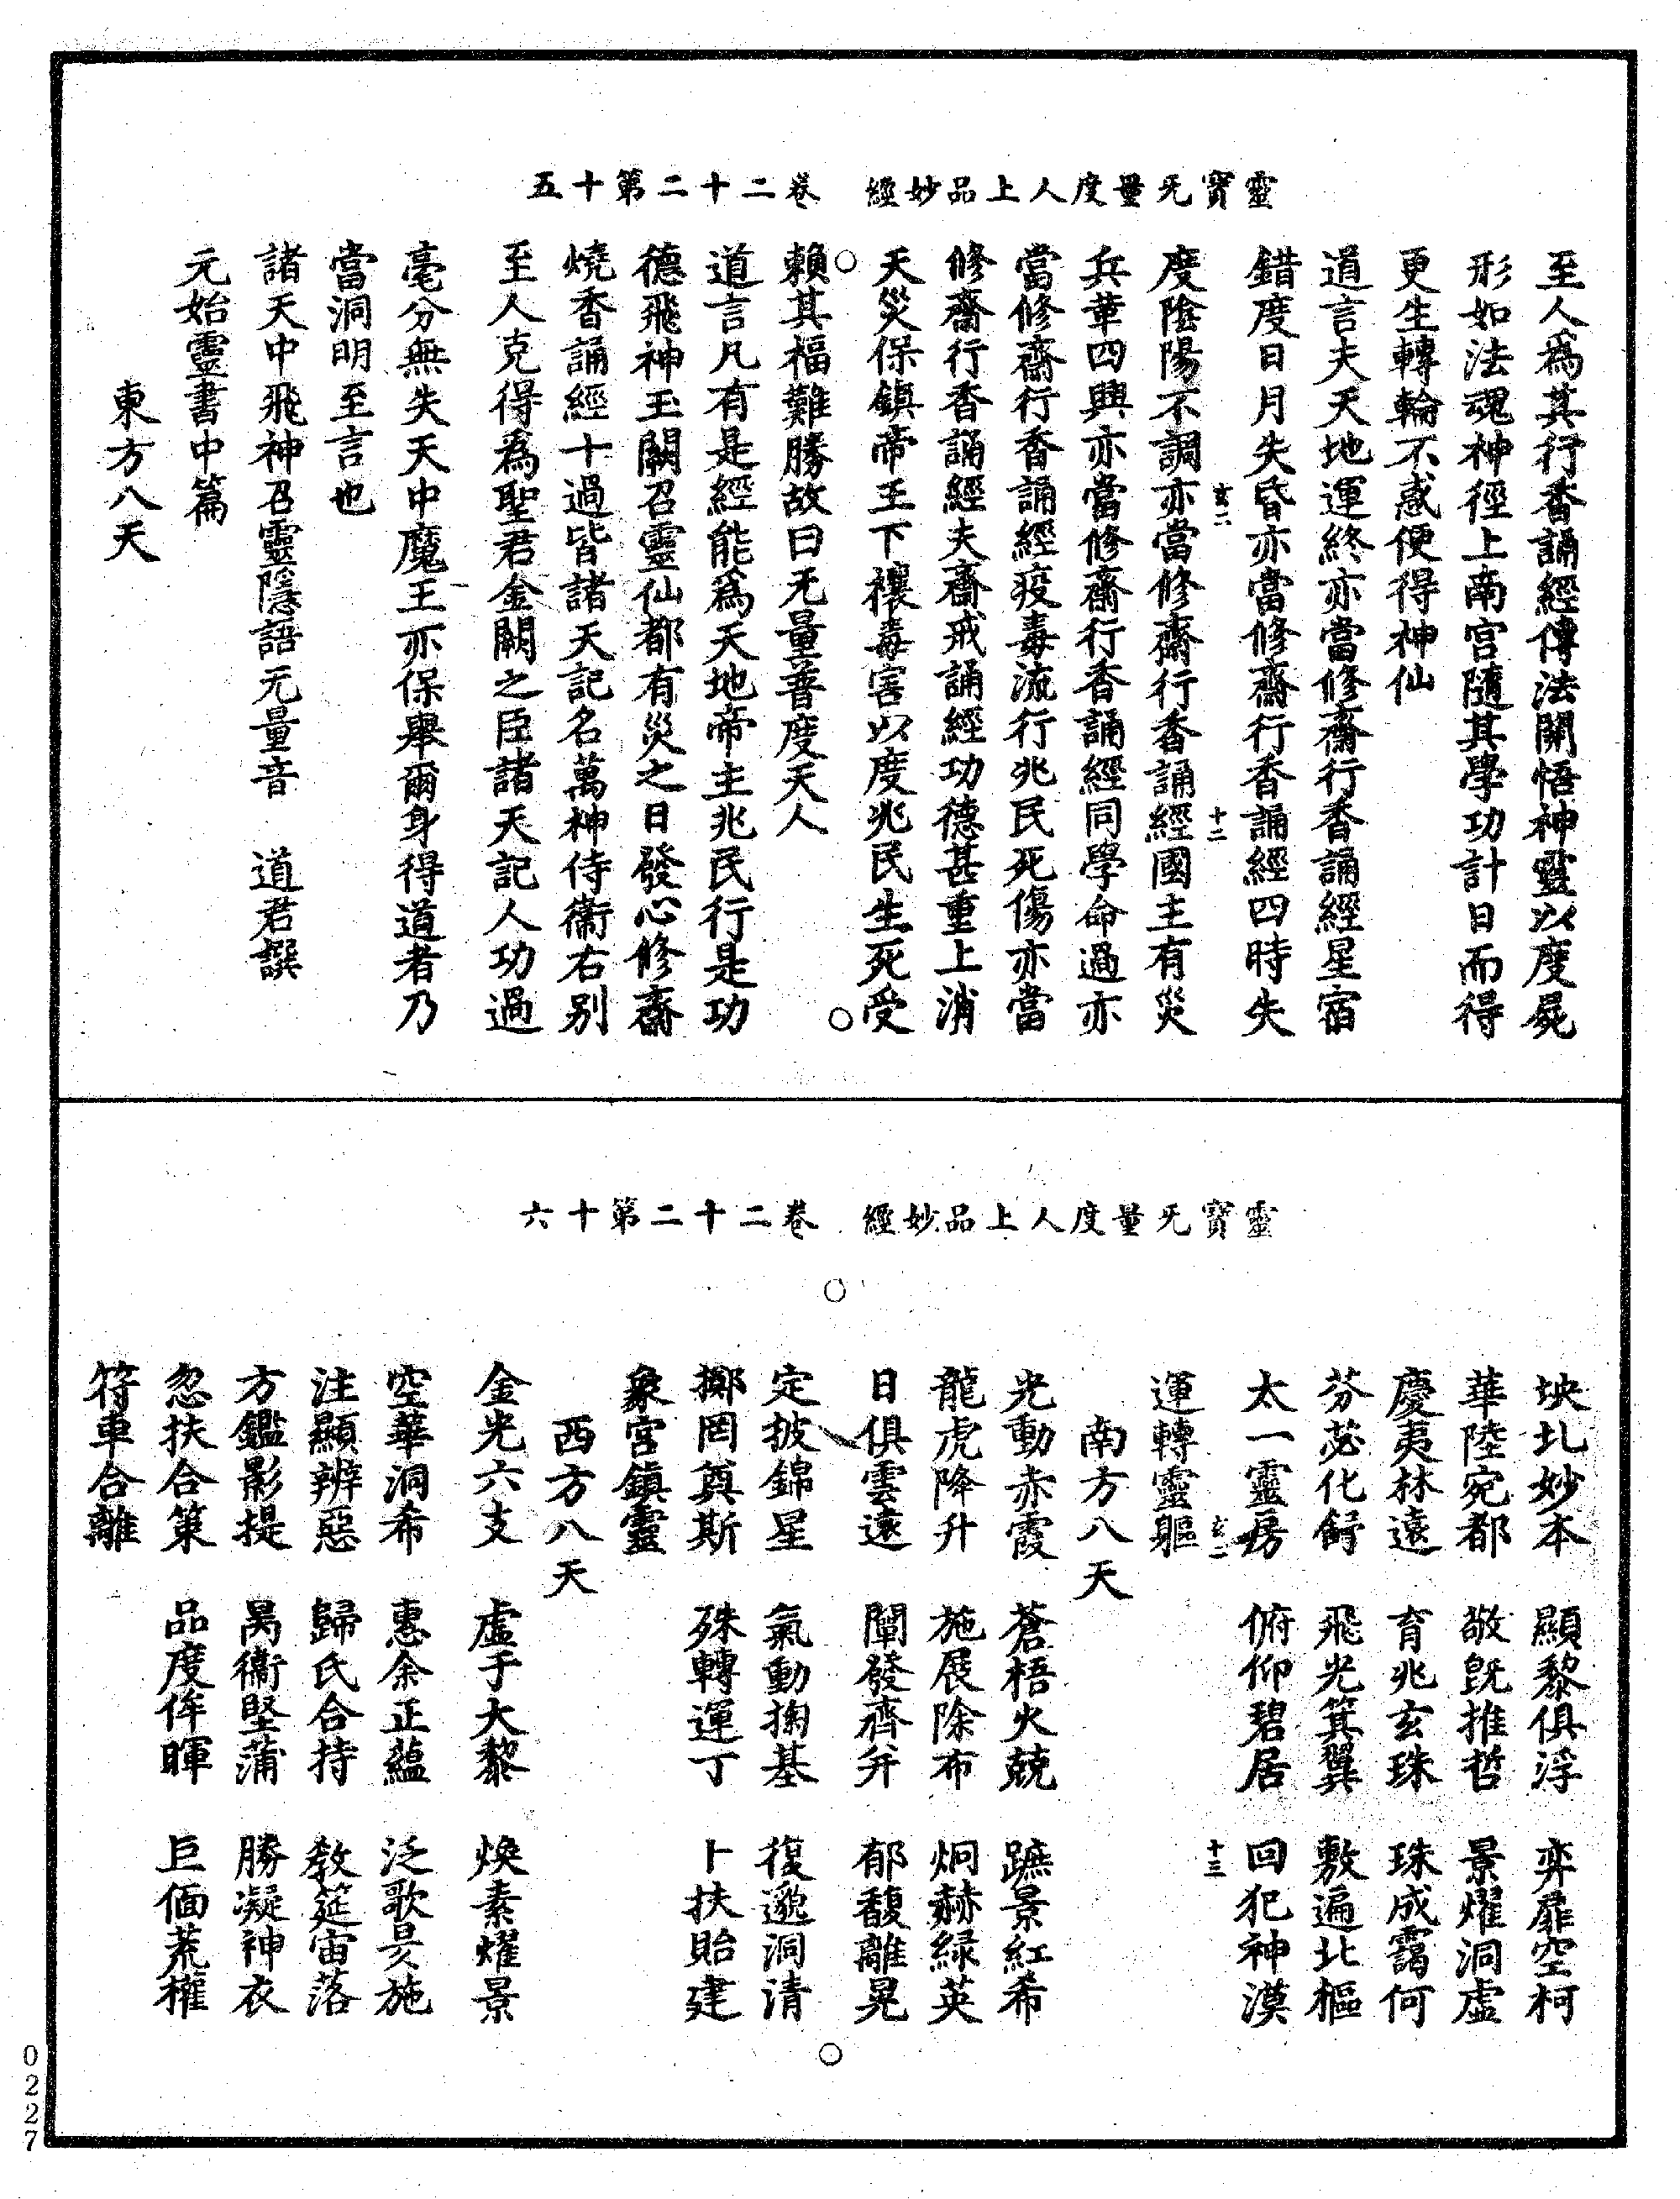 靈寶无量度人上品妙經　卷二十二第十五
至人爲其行香誦經傳法開悟神靈以度屍
形如法魂神徑上南宫隨其學功計日而得
更生轉輪不惑便得神仙
道言夫天地運終亦當修齋行香誦經星宿
錯度日月失昏亦當修齋行香誦經四時失
玄二　十二
度陰陽不調亦當修齋行香誦經國主有災
兵革四興亦當修齋行香誦經同學命過亦
當修齋行香誦經疫毒流行兆民死傷亦當
修齋行香誦經夫齋戒誦經功德甚重上消
天災保鎮帝王下禳毒害以度兆民生死受
賴其福難勝故曰无量普度天人
道言凡有是經能爲天地帝主兆民行是功
德飛神玉闕召靈仙都有災之日發心修齋
燒香誦經十過皆諸天記名萬神侍衞右别
至人克得爲聖君金闕之臣諸天記人功過
毫分無失天中魔王亦保舉爾身得道者乃
當洞明至言也
諸天中飛神召靈隱語元量音　道君撰
元始靈書中篇
東方八天
靈寶无量度人上品妙經　卷二十二第十六
坱圠妙本　顯黎俱浮　弈扉空柯
華陸宛都　敬旣推哲　景燿洞虛
慶夷林遠　育兆玄珠　珠成靄何
芬苾化餙　飛光箕翼　敷遍北樞
太一靈房　俯仰碧居　回犯神漠
玄二　十三
運轉靈軀
南方八天
光動赤霞　蒼梧火兢　蹠景紅希
龍虎降升　施展除布　炯赫綠英
日俱雲遠　闡發齊弁　郁馥離晃
定披錦星　氣動掬基　復邈洞清
擲罔奠斯　殊轉運丁　卜扶貽建
衆宫鎮靈
西方八天
金光六支　虛于大黎　煥素燿景
空華洞希　惠余正蘊　泛歌昊施
注顯辨惡　歸氏合持　敎筵宙落
方鑑影提　昺衞堅蒲　勝凝神衣
忽扶合策　品度侔暉　巨偭荒權
符車合離
0227